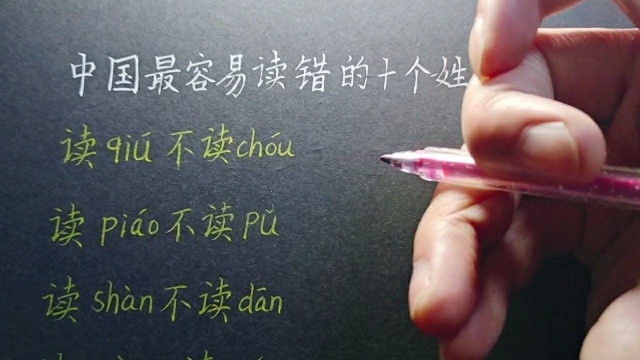 中国最容易读错的十个姓
读qiú不读chóu
读piáo不读Pǔ
读shàn不读dān